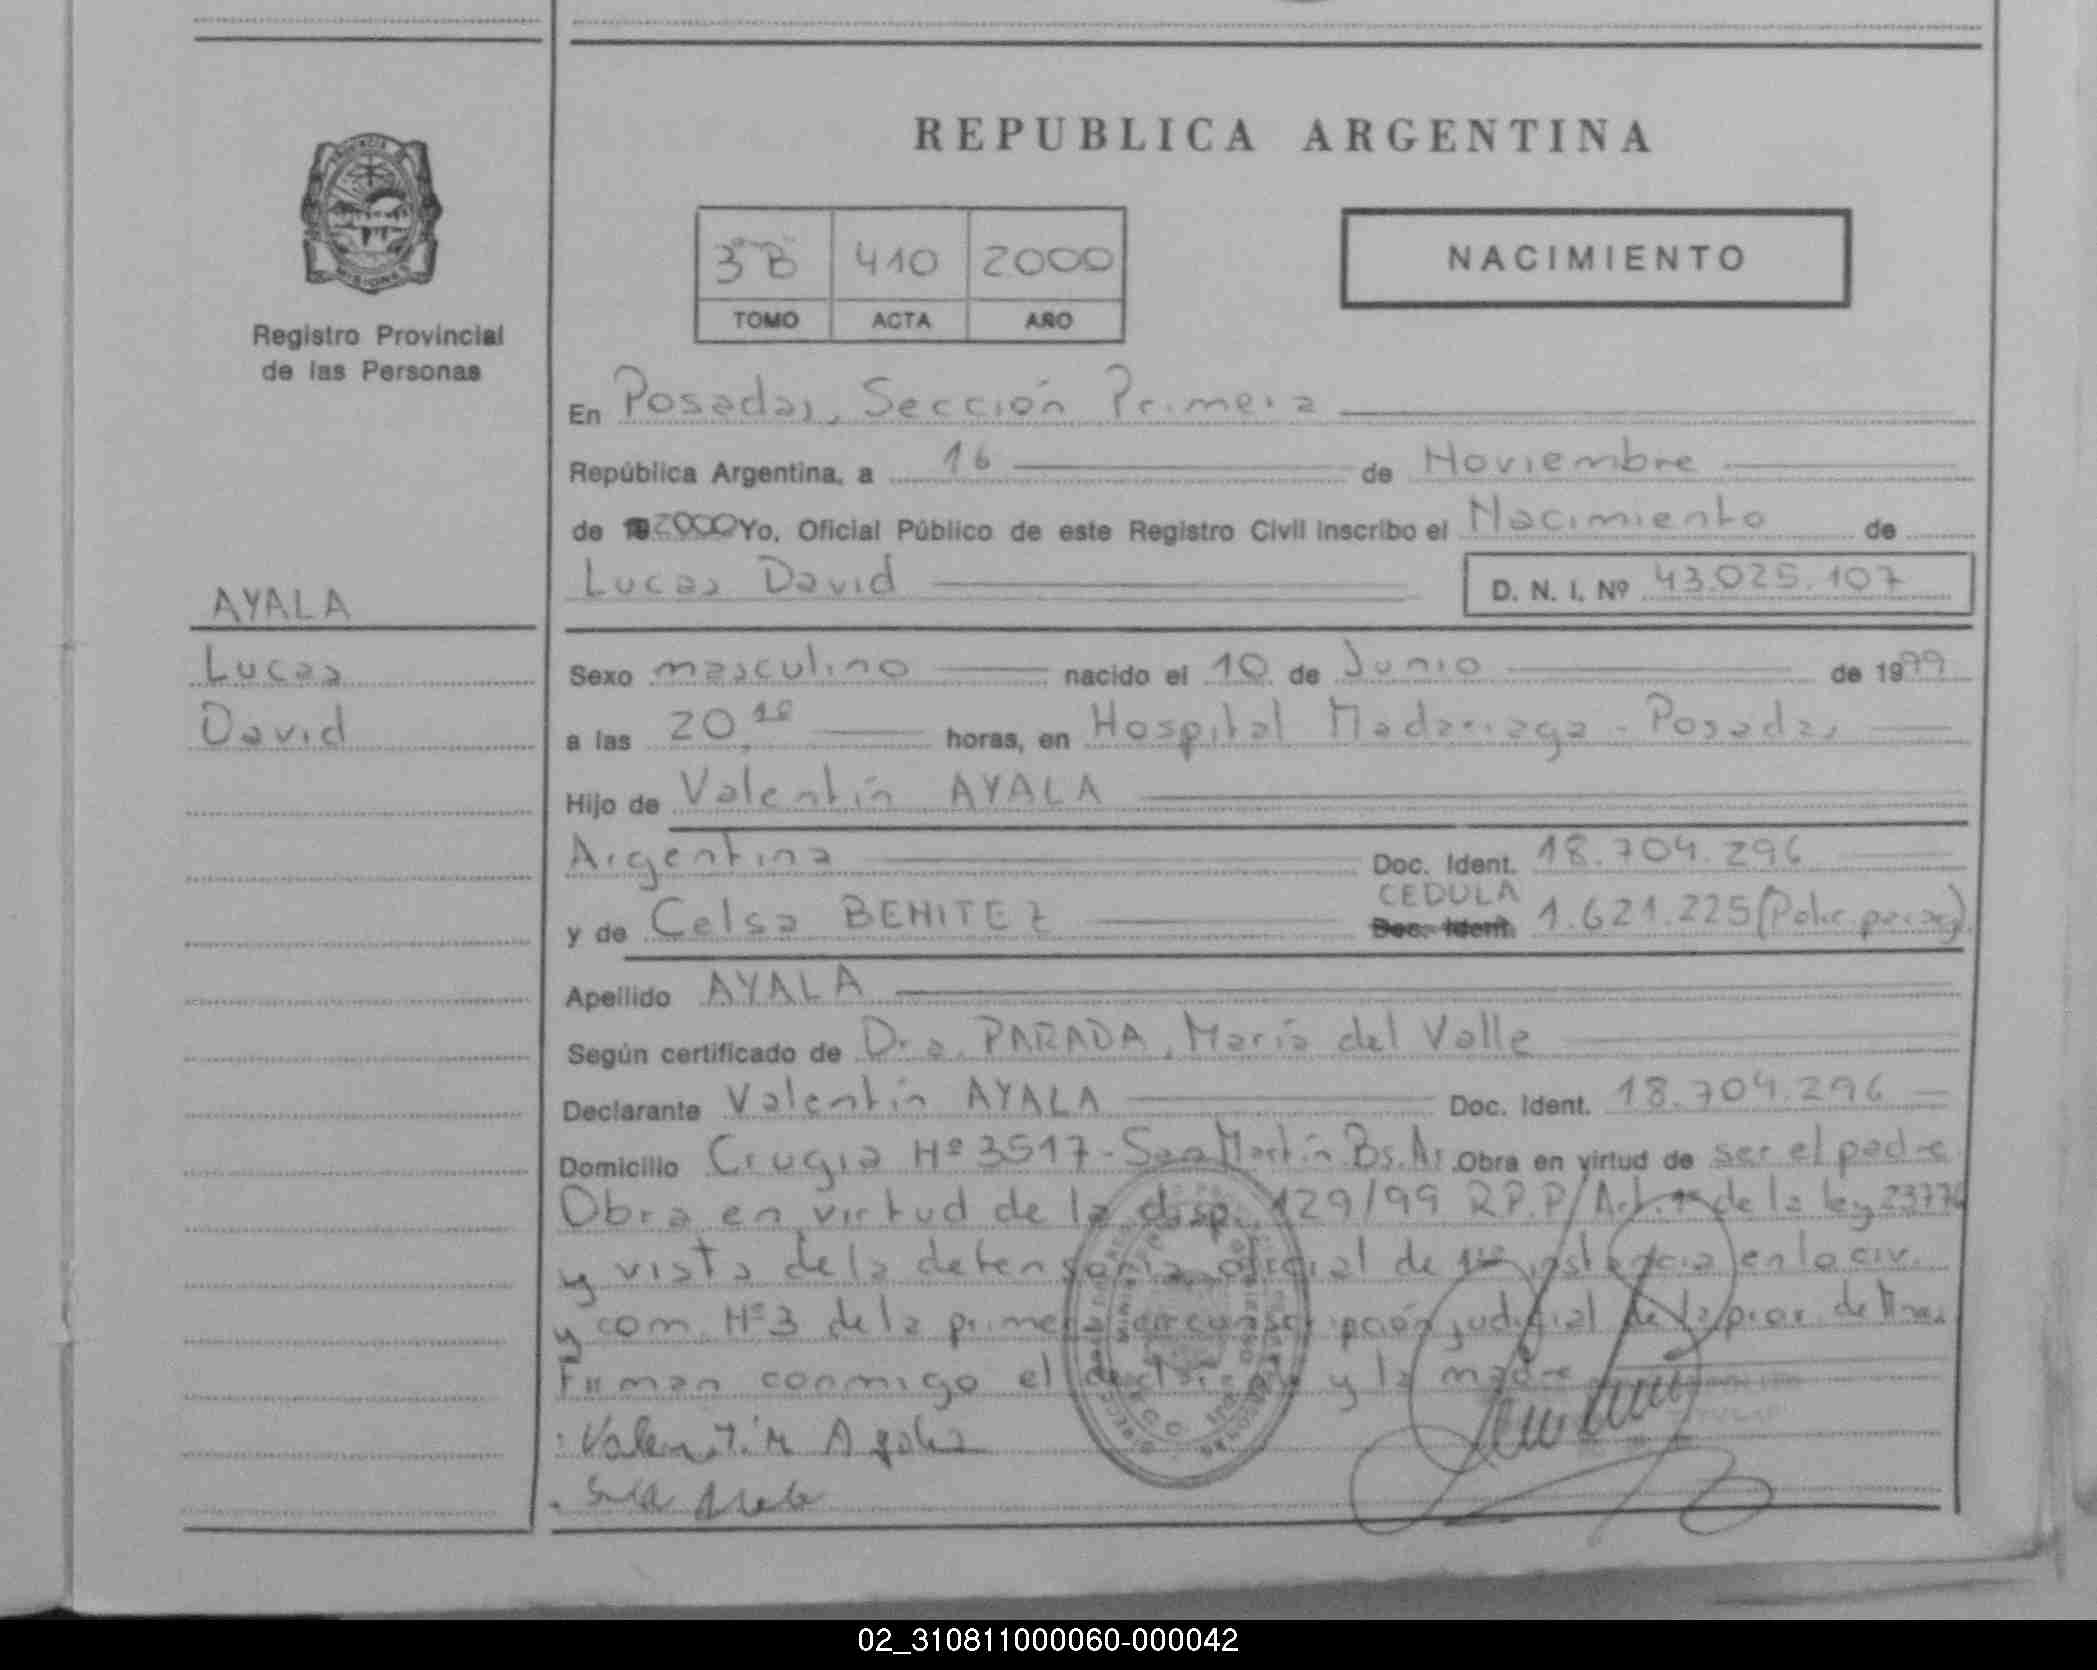 REPUBLICA ARGENTINA
3ºB 410 2000
TOMO ACTA AÑO
NACIMIENTO
Registro Provincial
de las Personas
En Posadas, Sección Primera
República Argentina, a 16 de Noviembre
de 2000 Yo, Oficial Público de este Registro Civil inscribo el Nacimiento de
Lucas David D. N. I. Nº 43.025.107
AYALA
Lucas
David
Sexo masculino nacido el 10 de Junio de 1999
a las 20,10 horas, en Hospital Madariaga - Posadas
Hijo de Valentín AYALA
Argentina Doc. Ident. 18.704.296
CEDULA
y de Celsa BENITEZ Doc. Ident. 1.621.225 (Polic. parag)
Apellido AYALA
Según certificado de Dra. PARADA, María del Valle
Declarante Valentín AYALA Doc. Ident. 18.704.296
Domicilio Crugia Nº 3517 - San Martín Bs. As. Obra en virtud de ser el padre
Obra en virtud de la disp. 129/99 R.P.P/Art. 1º de la ley 23776
y vista de la defensoria oficial de 1ra instancia en lo civ.
y com. Nº 3 de la primera circunscripción judicial de la prov. de Mnes.
Firman conmigo el declarante y la madre
Valentín Ayala
02_310811000060-000042